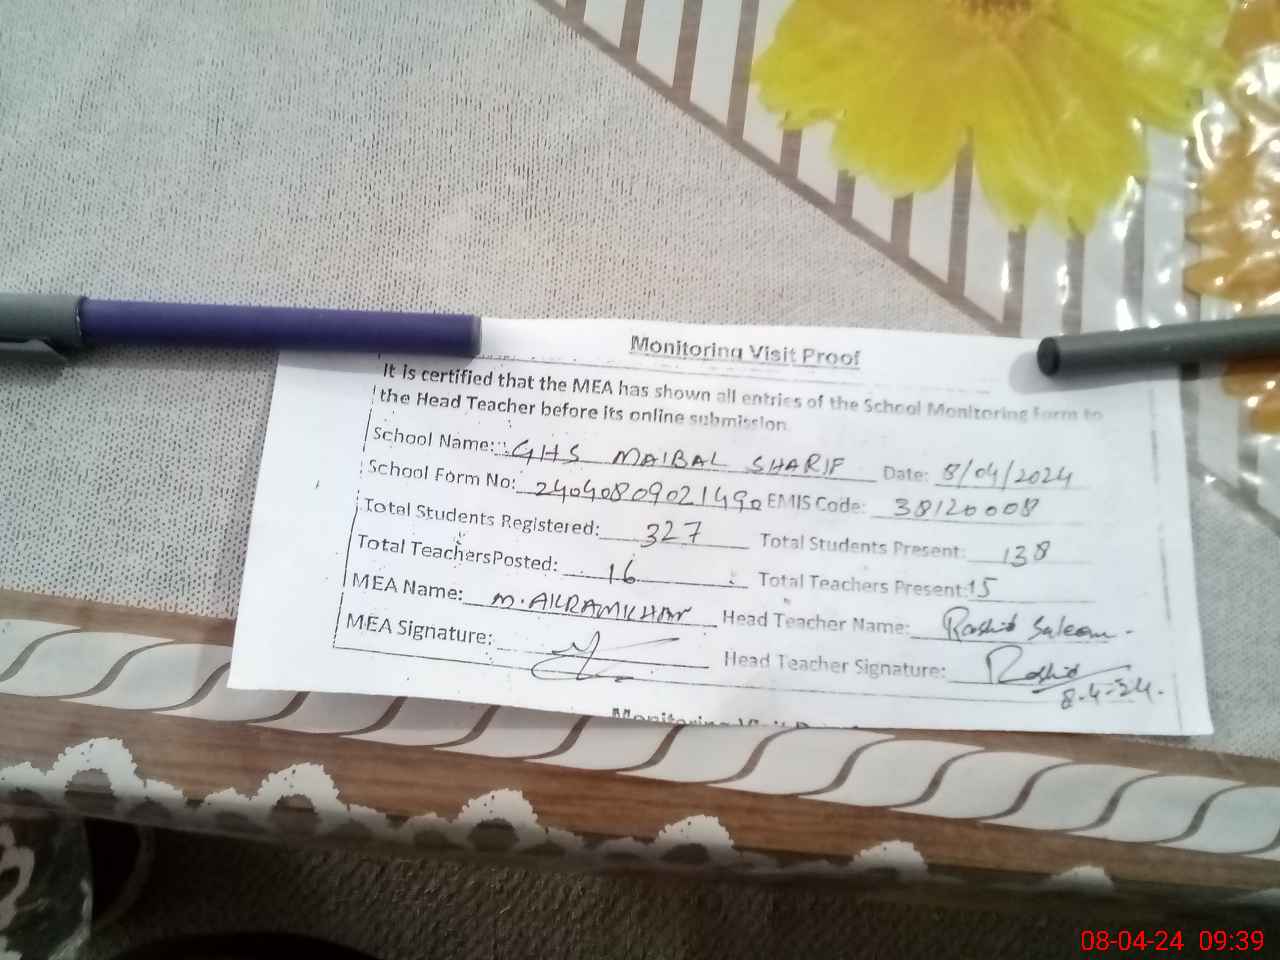 Monitoring Visit Proof
It is certified that the MEA has shown all entries of the School Monitoring Form to
the Head Teacher before its online submission.
School Name: GHS MAIBAL SHARIF Date: 8/04/2024
School Form No: 24040809021490 EMIS Code: 38120008
Total Students Registered: 327 Total Students Present: 138
Total TeachersPosted: 16 Total Teachers Present: 15
MEA Name: M. AKRAM KHAN Head Teacher Name: Rashid Saleem.
MEA Signature: Head Teacher Signature: Rashid
8.4.24.
Monitoring Visit Proof
08-04-24 09:39